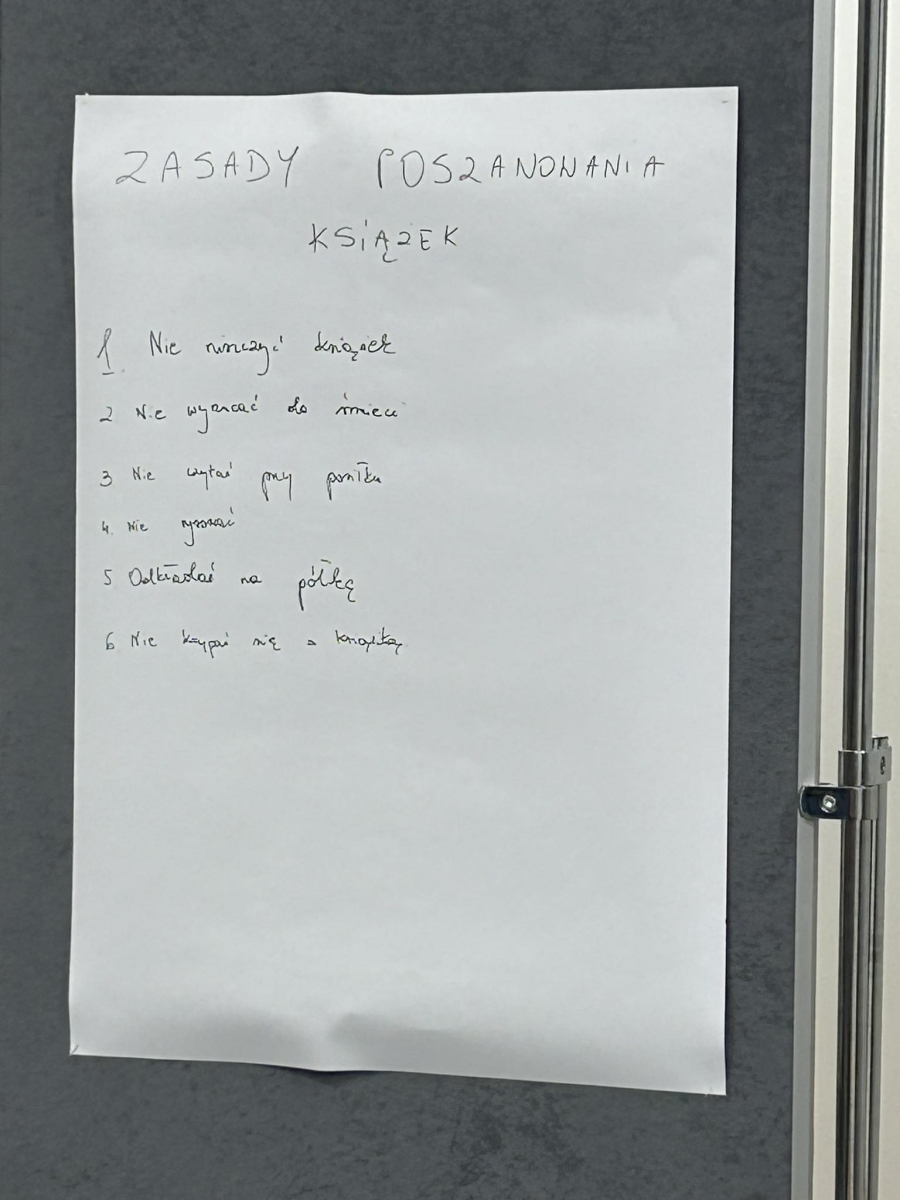 ZASADY POSZANOWANIA
KSIĄZEK
1. Nie niszczyć książek
2 Nie wyrzucać do śmieci
3 Nie czytać przy posiłku
4. Nie rysować
5 Odkładać na półkę
6 Nie kąpać się z książką